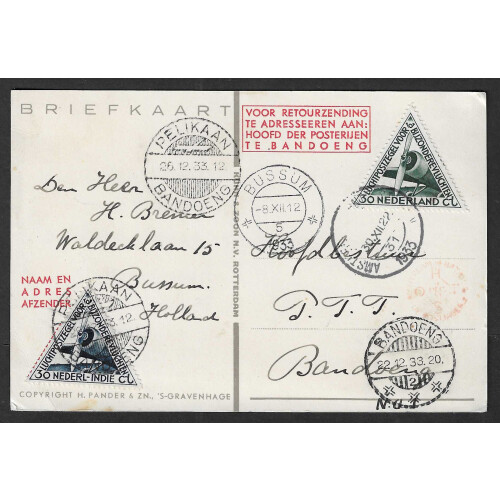 BRIEFKAART
VOOR RETOURZENDING
TE ADRESSEEREN AAN:
HOOFD DER POSTERIJEN
TE BANDOENG
LUCHTPOSTZEGEL VOOR BIJZONDERE VLUCHTEN
30 NEDERLAND CT
PELIKAAN
26.12.33.12
BANDOENG
BUSSUM
-8.XII.12
6
1933
1933
Den Heer
H. Bremer
Waldecklaan 15
Bussum.
Holland
NAAM EN
ADRES
AFZENDER
Hoofdbestuur
P.T.T.
Bandoeng
N.O.I.
BANDOENG
22.12.33.20.
2
PELIKAAN
BANDOENG
LUCHTPOSTZEGEL VOOR BIJZONDERE VLUCHTEN
30 NEDERL-INDIE CT
ZOON N.V. ROTTERDAM
COPYRIGHT H. PANDER & ZN., 'S-GRAVENHAGE